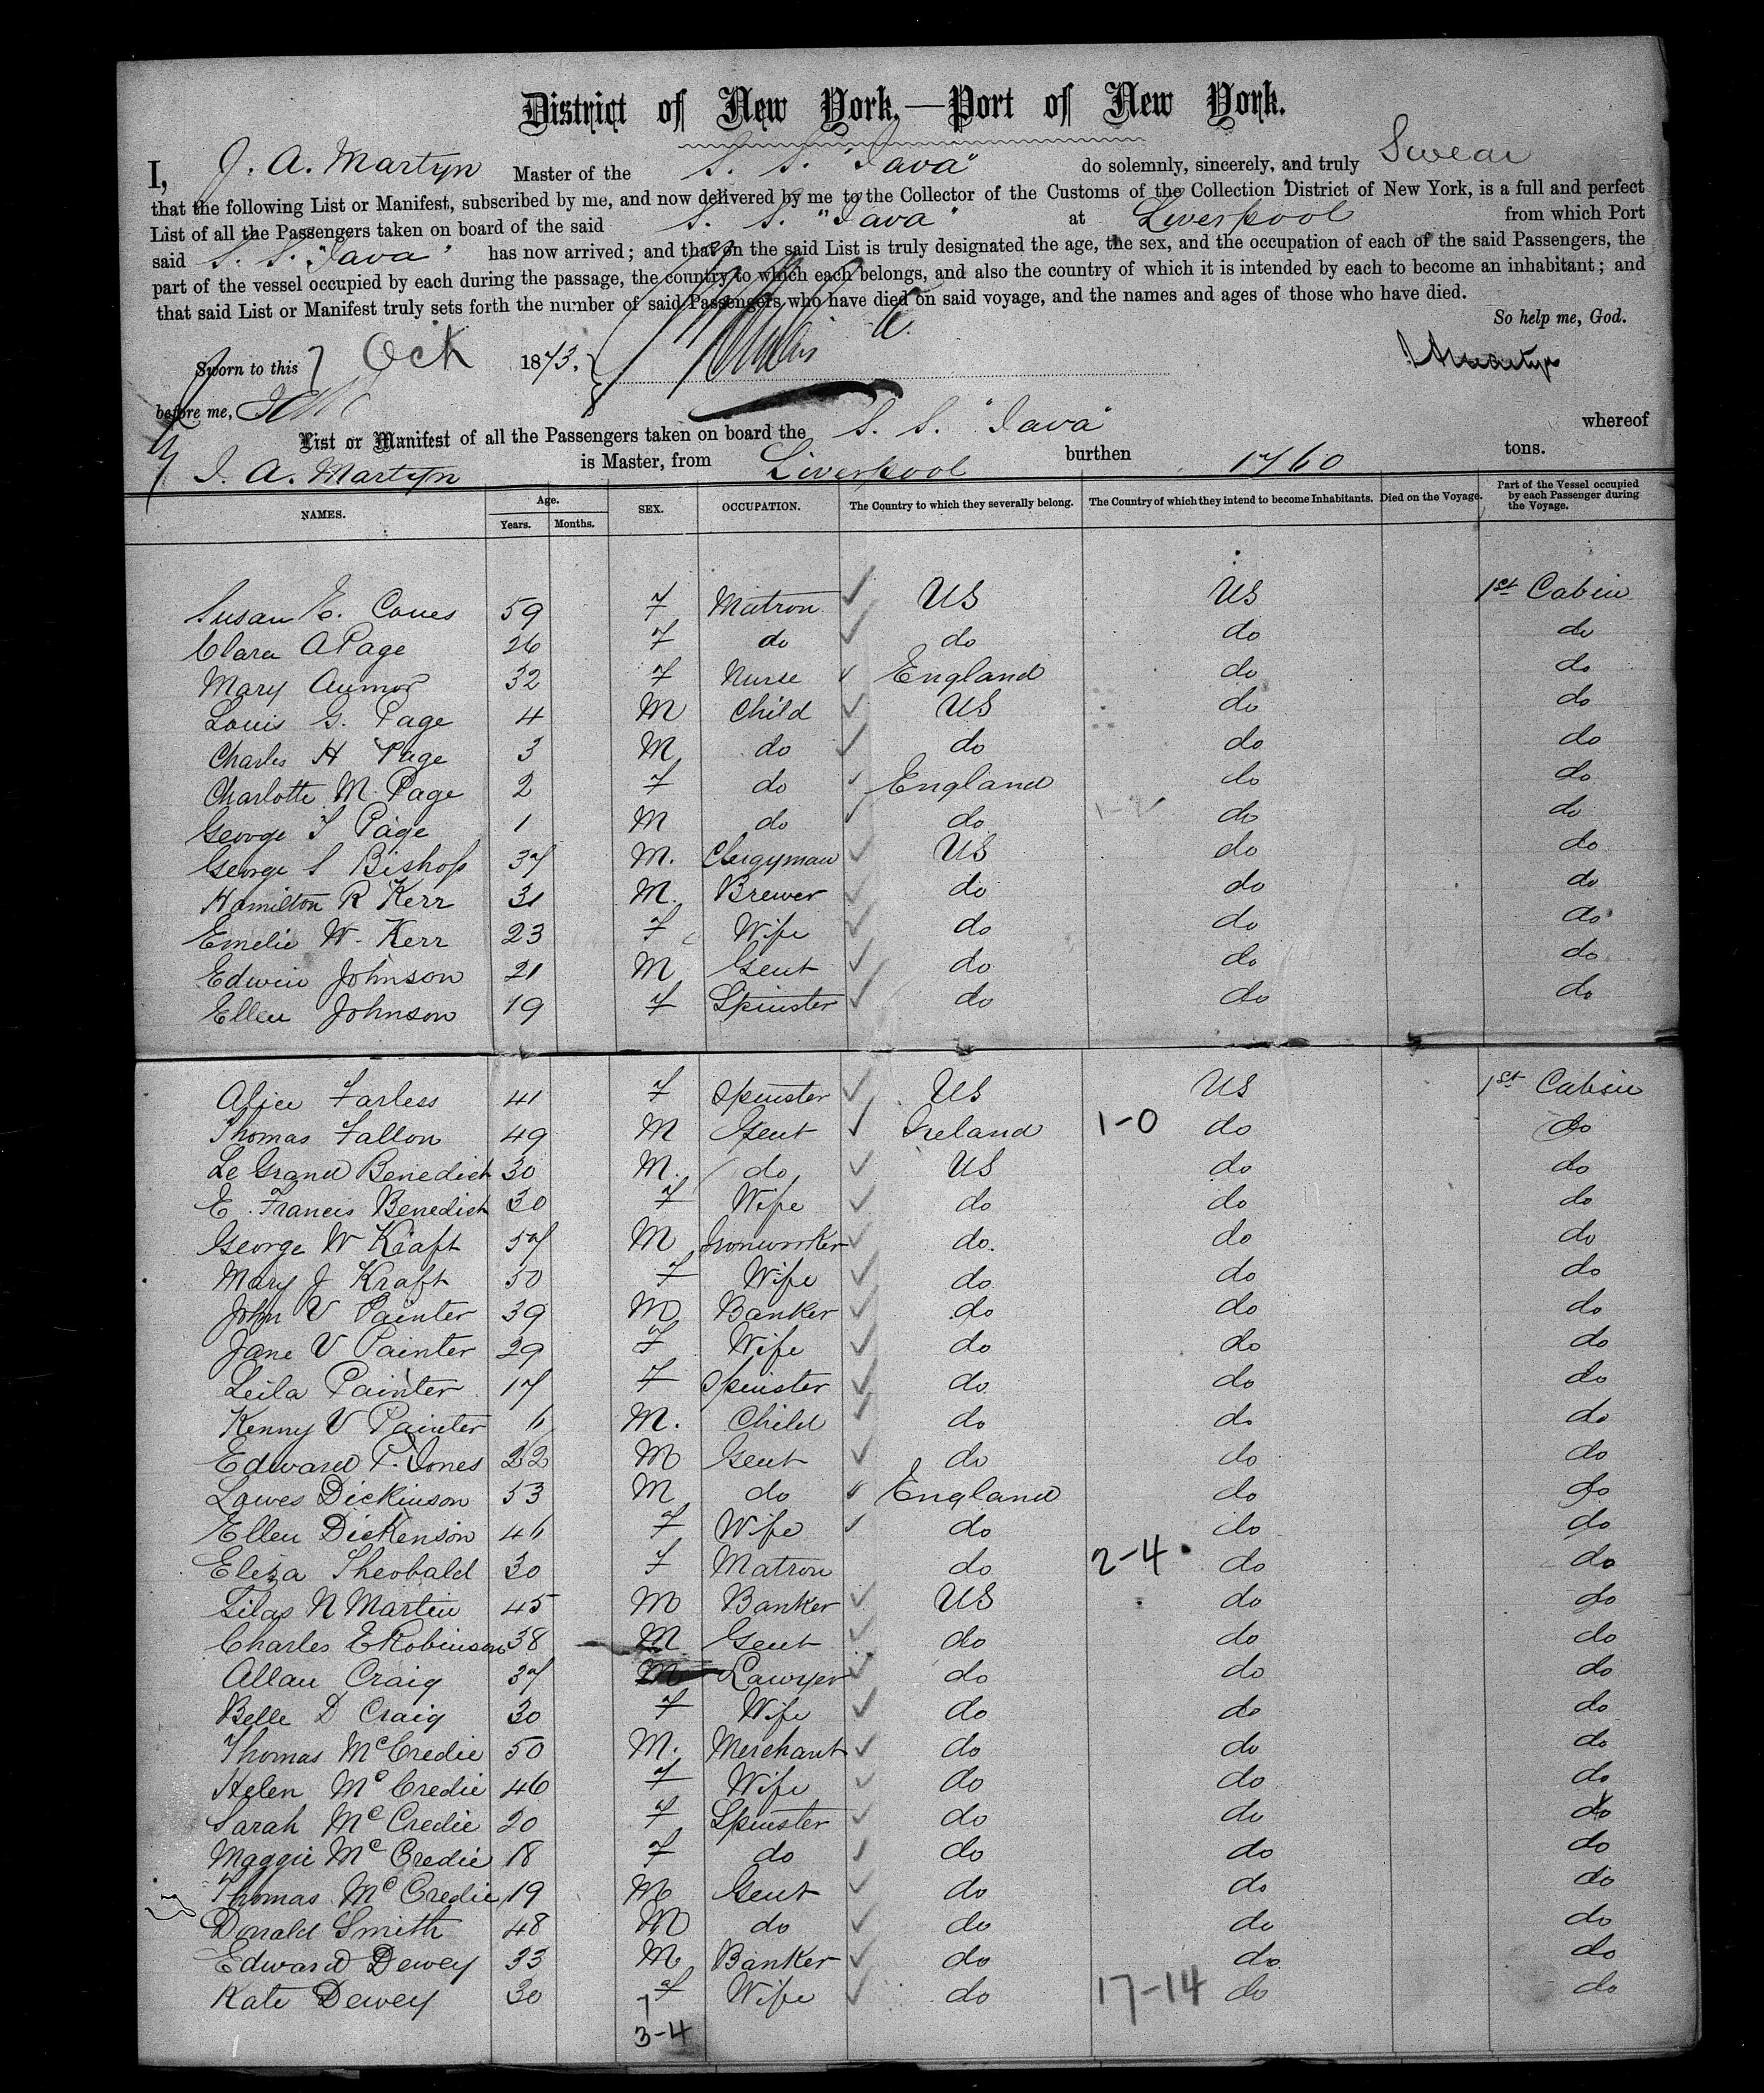 District of New York,—Port of New York.
I, J. A. Martyn Master of the S. S. "Java" do solemnly, sincerely, and truly Swear
that the following List or Manifest, subscribed by me, and now delivered by me to the Collector of the Customs of the Collection District of New York, is a full and perfect
List of all the Passengers taken on board of the said S. S. "Java" at Liverpool from which Port
said S. S. "Java" has now arrived; and that on the said List is truly designated the age, the sex, and the occupation of each of the said Passengers, the
part of the vessel occupied by each during the passage, the country to which each belongs, and also the country of which it is intended by each to become an inhabitant; and
that said List or Manifest truly sets forth the number of said Passengers who have died on said voyage, and the names and ages of those who have died.
So help me, God.
Sworn to this 7 Oct 1873.
J A Martyn
before me,
List or Manifest of all the Passengers taken on board the S. S. "Java" whereof
J. A. Martyn is Master, from Liverpool burthen 1760 tons.
NAMES. Age. Years. Months. SEX. OCCUPATION. The Country to which they severally belong. The Country of which they intend to become Inhabitants. Died on the Voyage. Part of the Vessel occupied by each Passenger during the Voyage.
Susan E. Coues 59 F Matron US US 1st Cabin
Clara A Page 26 F do do do do
Mary Aumor 32 F Nurse England do do
Louis G. Page 4 M Child US do do
Charles H Page 3 M do do do do
Charlotte M. Page 2 F do England do do
George T Page 1 M do do do do
George S Bishop 37 M. Clergyman US do do
Hamilton R Kerr 31 M. Brewer do do do
Emelie W. Kerr 23 F Wife do do do
Edwin Johnson 21 M Gent do do do
Ellen Johnson 19 F Spinster do do do
Alice Farless 41 F Spinster US US 1st Cabin
Thomas Fallon 49 M Gent Ireland 1-0 do do
Le Grand Benedict 30 M. do US do do
E. Francis Benedict 30 F Wife do do do
George W Kraft 57 M Ironworker do. do do
Mary J Kraft 50 F Wife do do do
John V Painter 39 M Banker do do do
Jane V Painter 29 F Wife do do do
Leila Painter 17 F Spinster do do do
Kenny V Painter 11 M. Child do do do
Edward P. Jones 22 M Gent do do do
Lowes Dickinson 53 M do England do do
Ellen Dickenson 46 F Wife do do do
Eliza Theobald 30 F Matron do 2-4 do do
Silas N Martin 45 M Banker US do do
Charles E Robinson 38 M Gent do do do
Allan Craig 37 M Lawyer do do do
Belle D Craig 30 F Wife do do do
Thomas McCredie 50 M. Merchant do do do
Helen McCredie 46 F Wife do do do
Sarah McCredie 20 F Spinster do do do
Maggie McCredie 18 F do do do do
Thomas McCredie 19 M Gent do do do
Donald Smith 48 M do do do do
Edward Dewey 33 M Banker do do do
Kate Dewey 30 F Wife do 17-14 do do
3-4